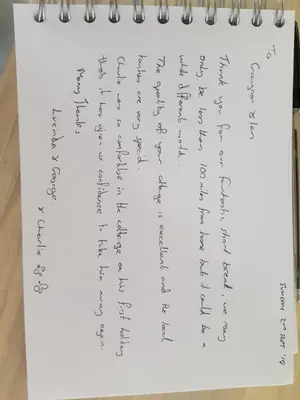 SUNDAY 2ND SEPT '18
To
& Ian
Thank you for our fantastic short break, we may
only be less than 100 miles from home but it could be a
whole different world.
The quality of your cottage is excellent and the local
touches are very special.
Charlie was so comfortable in the cottage on his first holiday
thats it has given us confidence to take him away again.
Many Thanks
Lucinda & George.
& Charlie